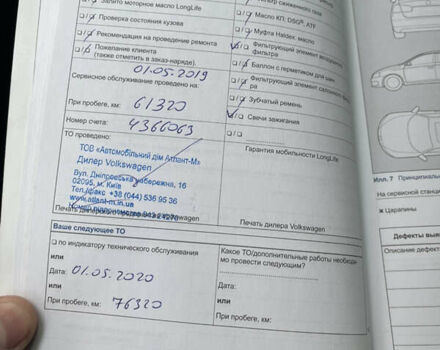 Залито моторное масло LongLife
Проверка состояния кузова
Рекомендация на проведение ремонта
Пожелание клиента
(также отметить в заказ-наряде).
Сервисное обслуживание проведено на:
01.05.2019
При пробеге, км: 61320
Номер счета: 4366063
ТО проведено:
ТОВ «Автомобільний дім Атлант-М»
Дилер Volkswagen
Вул. Дніпровська набережна, 16
02095, м. Київ
Тел./факс +38 (044) 536 95 36
Печать дилера Volkswagen
Масло КП, DSG®, ATF
Муфта Haldex: масло
Фильтрующий элемент воздушного
фильтра
Баллон с герметиком для шин
Фильтрующий элемент салонного
фильтра
Зубчатый ремень
Свечи зажигания
Гарантия мобильности LongLife
Печать дилера Volkswagen
Ваше следующее ТО
по индикатору технического обслуживания
или
Дата: 01.05.2020
или
При пробеге, км: 76320
Какое ТО/дополнительные работы необходи-
мо провести следующим?
Дата:
или
При пробеге, км:
Илл. 7 Принципиаль
На сервисной станци
Царапины
Дефекты выяв
Описание дефект